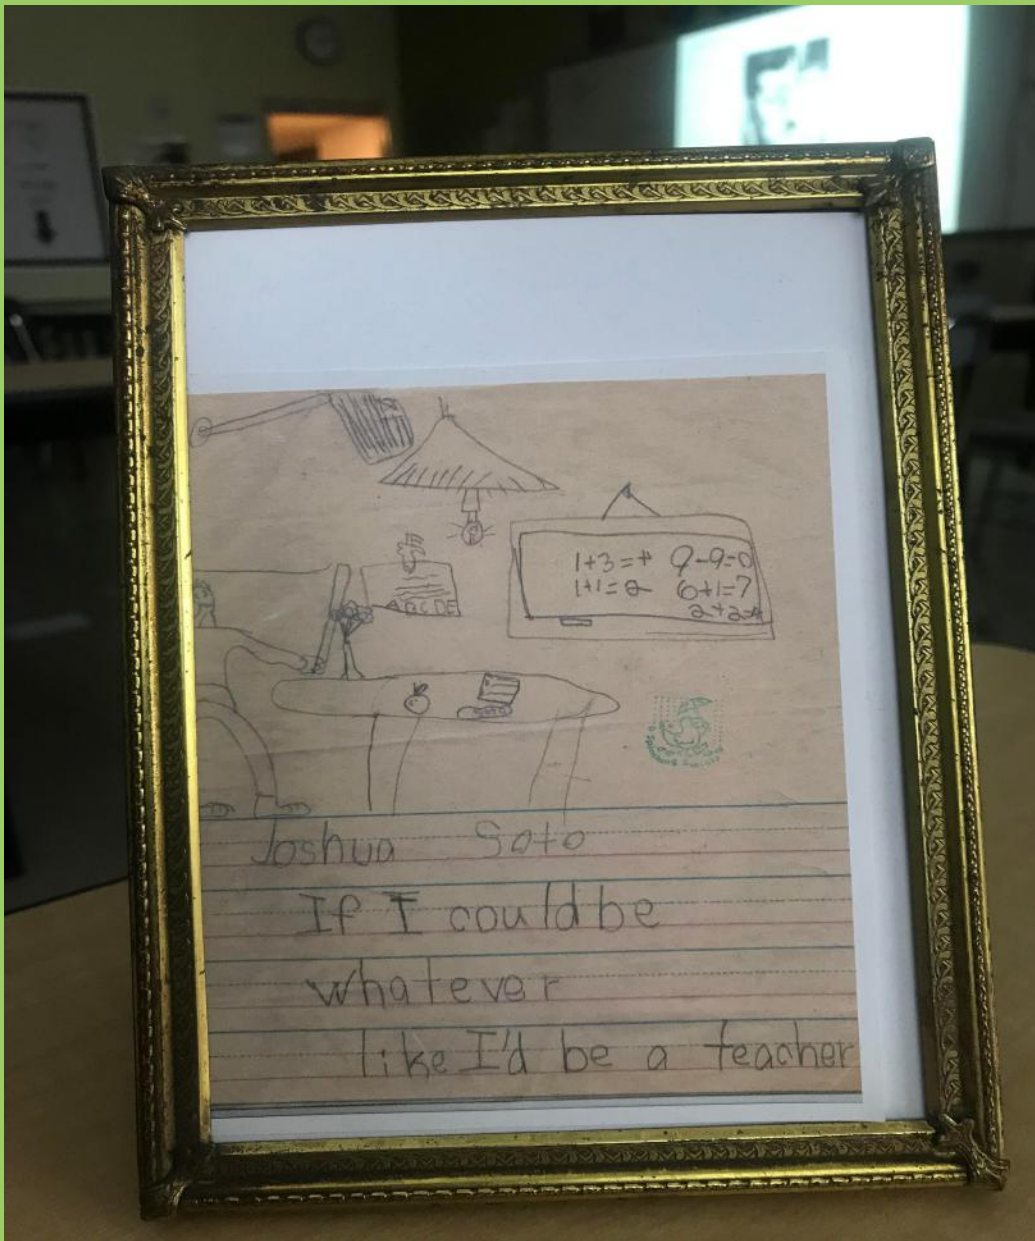 ABCDE
1+3=4 9-9=0
1+1=2 6+1=7
2+2=4
Joshua Soto
If I could be
whatever
like I'd be a teacher